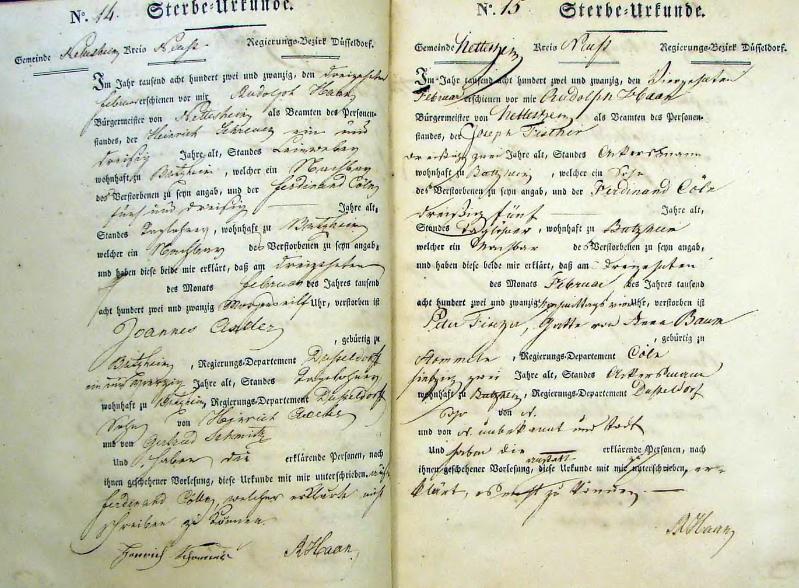 No. 14. Sterbe-Urkunde.
Gemeinde Nettesheim Kreis Neuß Regierungs-Bezirk Düsseldorf.
Im Jahr tausend acht hundert zwei und zwanzig, den dreizehnten
Februar erschienen vor mir Rudolph Haan
Bürgermeister von Nettesheim als Beamten des Personen-
standes, der Heinrich ein und
dreißig Jahre alt, Standes Leinweber
wohnhaft zu Butzheim, welcher ein Nachbar
des Verstorbenen zu seyn angab, und der Ferdinand Cöln
fünf und dreißig Jahre alt,
Standes Taglöhner, wohnhaft zu Butzheim
welcher ein Nachbar des Verstorbenen zu seyn angab,
und haben diese beide mir erklärt, daß am dreizehnten
des Monats Februar des Jahres tausend
acht hundert zwei und zwanzig Uhr, verstorben ist
Joannes
, gebürtig zu
Butzheim, Regierungs-Departement Düsseldorf
ein und Jahre alt, Standes Taglöhner
wohnhaft zu Butzheim, Regierungs-Departement Düsseldorf
Sohn von Heinrich
und von Gertrud Schmitz
Und haben die erklärende Personen, nach
ihnen geschehener Vorlesung, diese Urkunde mit mir unterschrieben,
Ferdinand Cöln, welcher erklärte nicht
schreiben zu können.
Henrich
R Haan
No. 15. Sterbe-Urkunde.
Gemeinde Nettesheim Kreis Neuß Regierungs-Bezirk Düsseldorf.
Im Jahr tausend acht hundert zwei und zwanzig, den vierzehnten
Februar erschienen vor mir Rudolph Haan
Bürgermeister von Nettesheim als Beamten des Personen-
standes, der Joseph Fischer
dreißig zwei Jahre alt, Standes Ackersmann
wohnhaft zu Butzheim, welcher ein Sohn
des Verstorbenen zu seyn angab, und der Ferdinand Cöln
dreißig fünf Jahre alt,
Standes Taglöhner, wohnhaft zu Butzheim
welcher ein Nachbar des Verstorbenen zu seyn angab,
und haben diese beide mir erklärt, daß am dreizehnten
des Monats Februar des Jahres tausend
acht hundert zwei und zwanzig Uhr, verstorben ist
Gatte von Anna Baum
, gebürtig zu
Stommeln, Regierungs-Departement Cöln
siebzig zwei Jahre alt, Standes Ackersmann
wohnhaft zu Butzheim, Regierungs-Departement Düsseldorf
Sohn von N.
und von N. unbekannt und todt
Und haben die erklärende Personen, nach
ihnen geschehener Vorlesung, diese Urkunde mit mir anstatt zu unterschreiben, er-
klärt, es nicht zu können.
R Haan